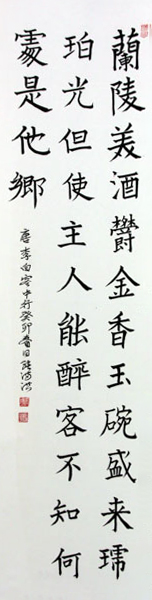 蘭陵美酒鬱金香玉碗盛来琥
珀光但使主人能醉客不知何
處是他鄉
唐李白客中行癸卯春日